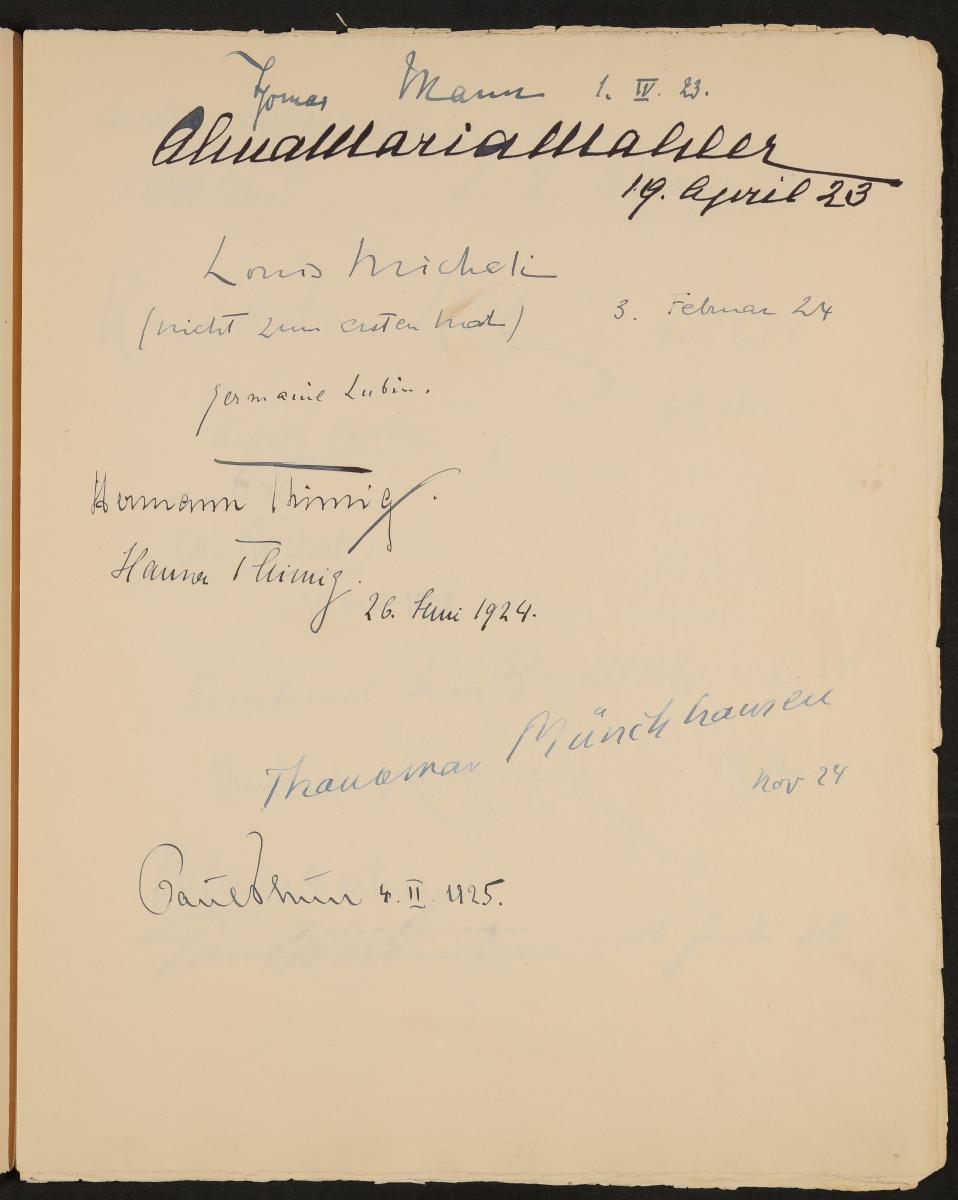 Thomas Mann 1. IV. 23.
Alma Maria Mahler
19. April 23
Louis Micheli
(nicht zum ersten Mal) 3. Februar 24
Germaine Lubin.
Hermann Thimig.
Hanna Thimig.
26. Juni 1924.
Thankmar Münchhausen
Nov 24
Paul Thun 4. II. 1925.